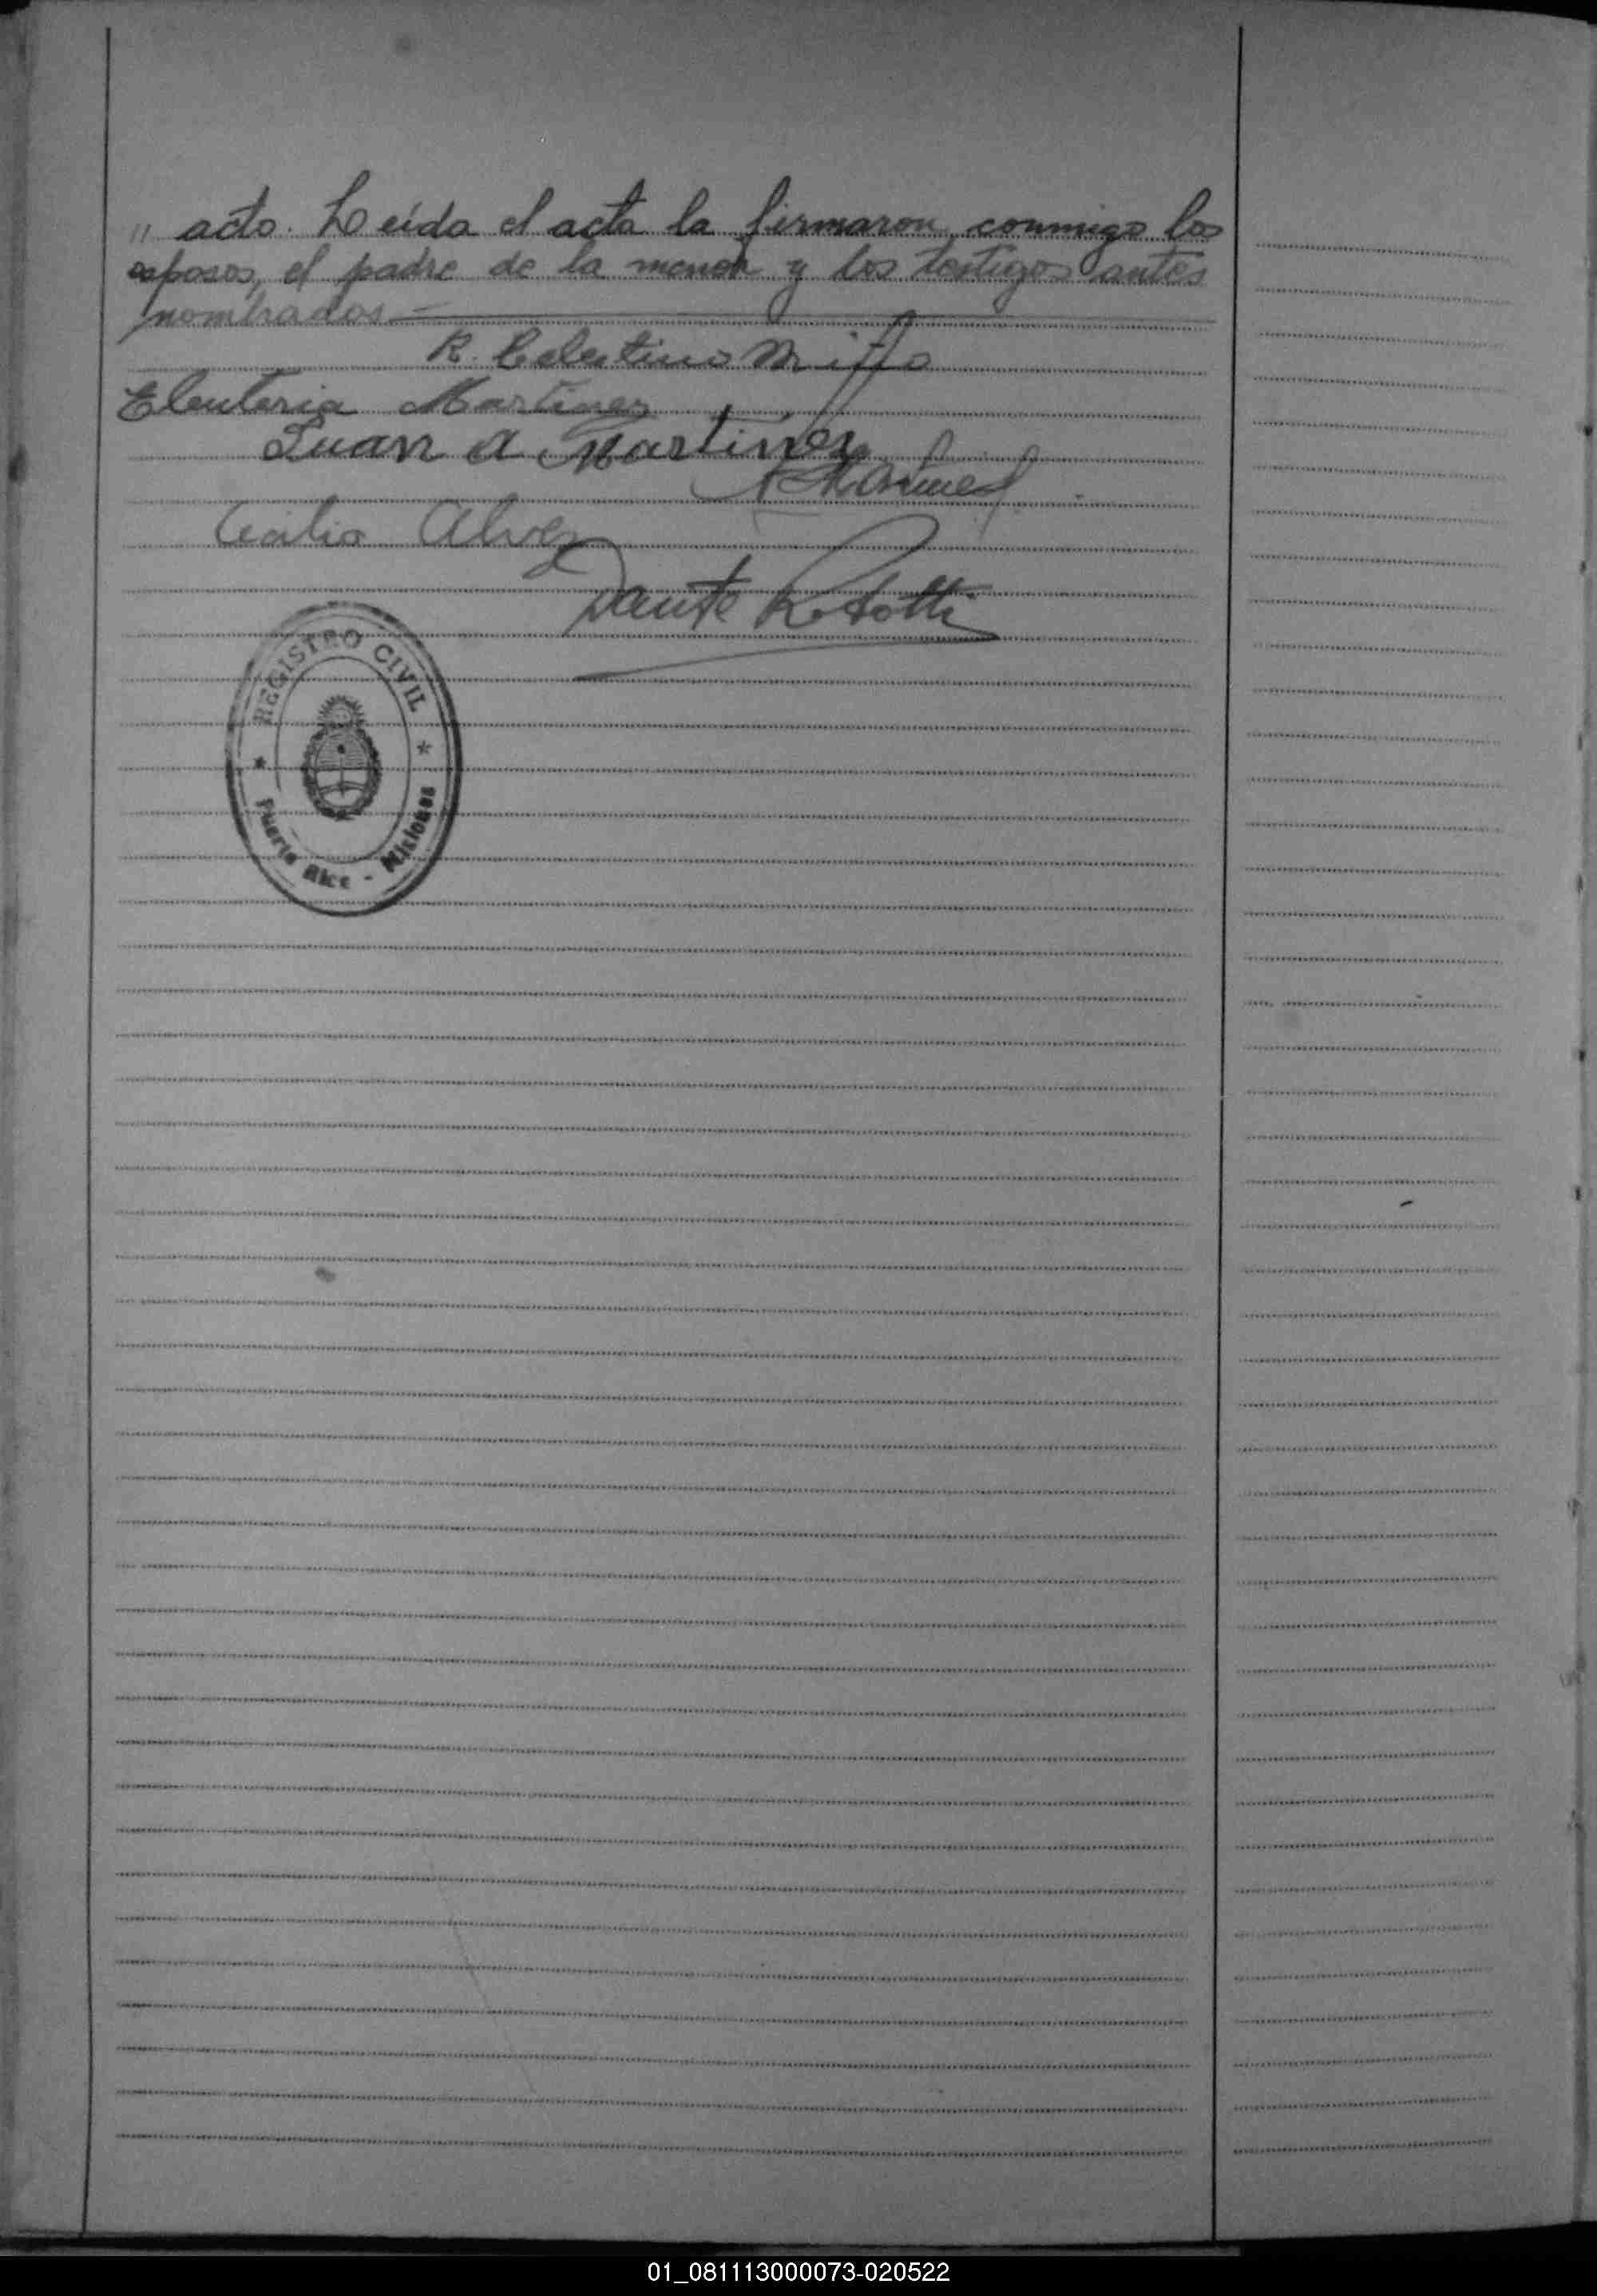 " acto. Leída el acta la firmaron conmigo los
esposos, el padre de la menor y los testigos antes
nombrados.
R. Celestino Miño
Eleuteria Martinez
Juan A Martinez
Cecilio Alvez
Dante
REGISTRO CIVIL
Puerto Rico - Misiones
01_081113000073-020522